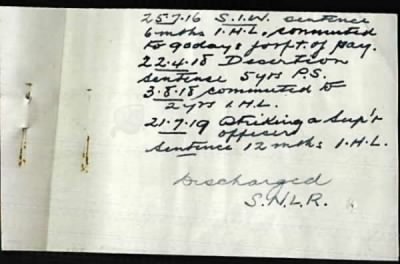 25.7.16 S.I.W. sentence
6 mths I.H.L. commuted
to 90 days forft. of pay.
22.4.18 Desertion
sentence 5 yrs P.S.
3.8.18 commuted to
2 yrs I.H.L.
21.7.19 Striking a Sup'r
officer
Sentence 12 mths I.H.L.
Discharged
S.N.L.R.